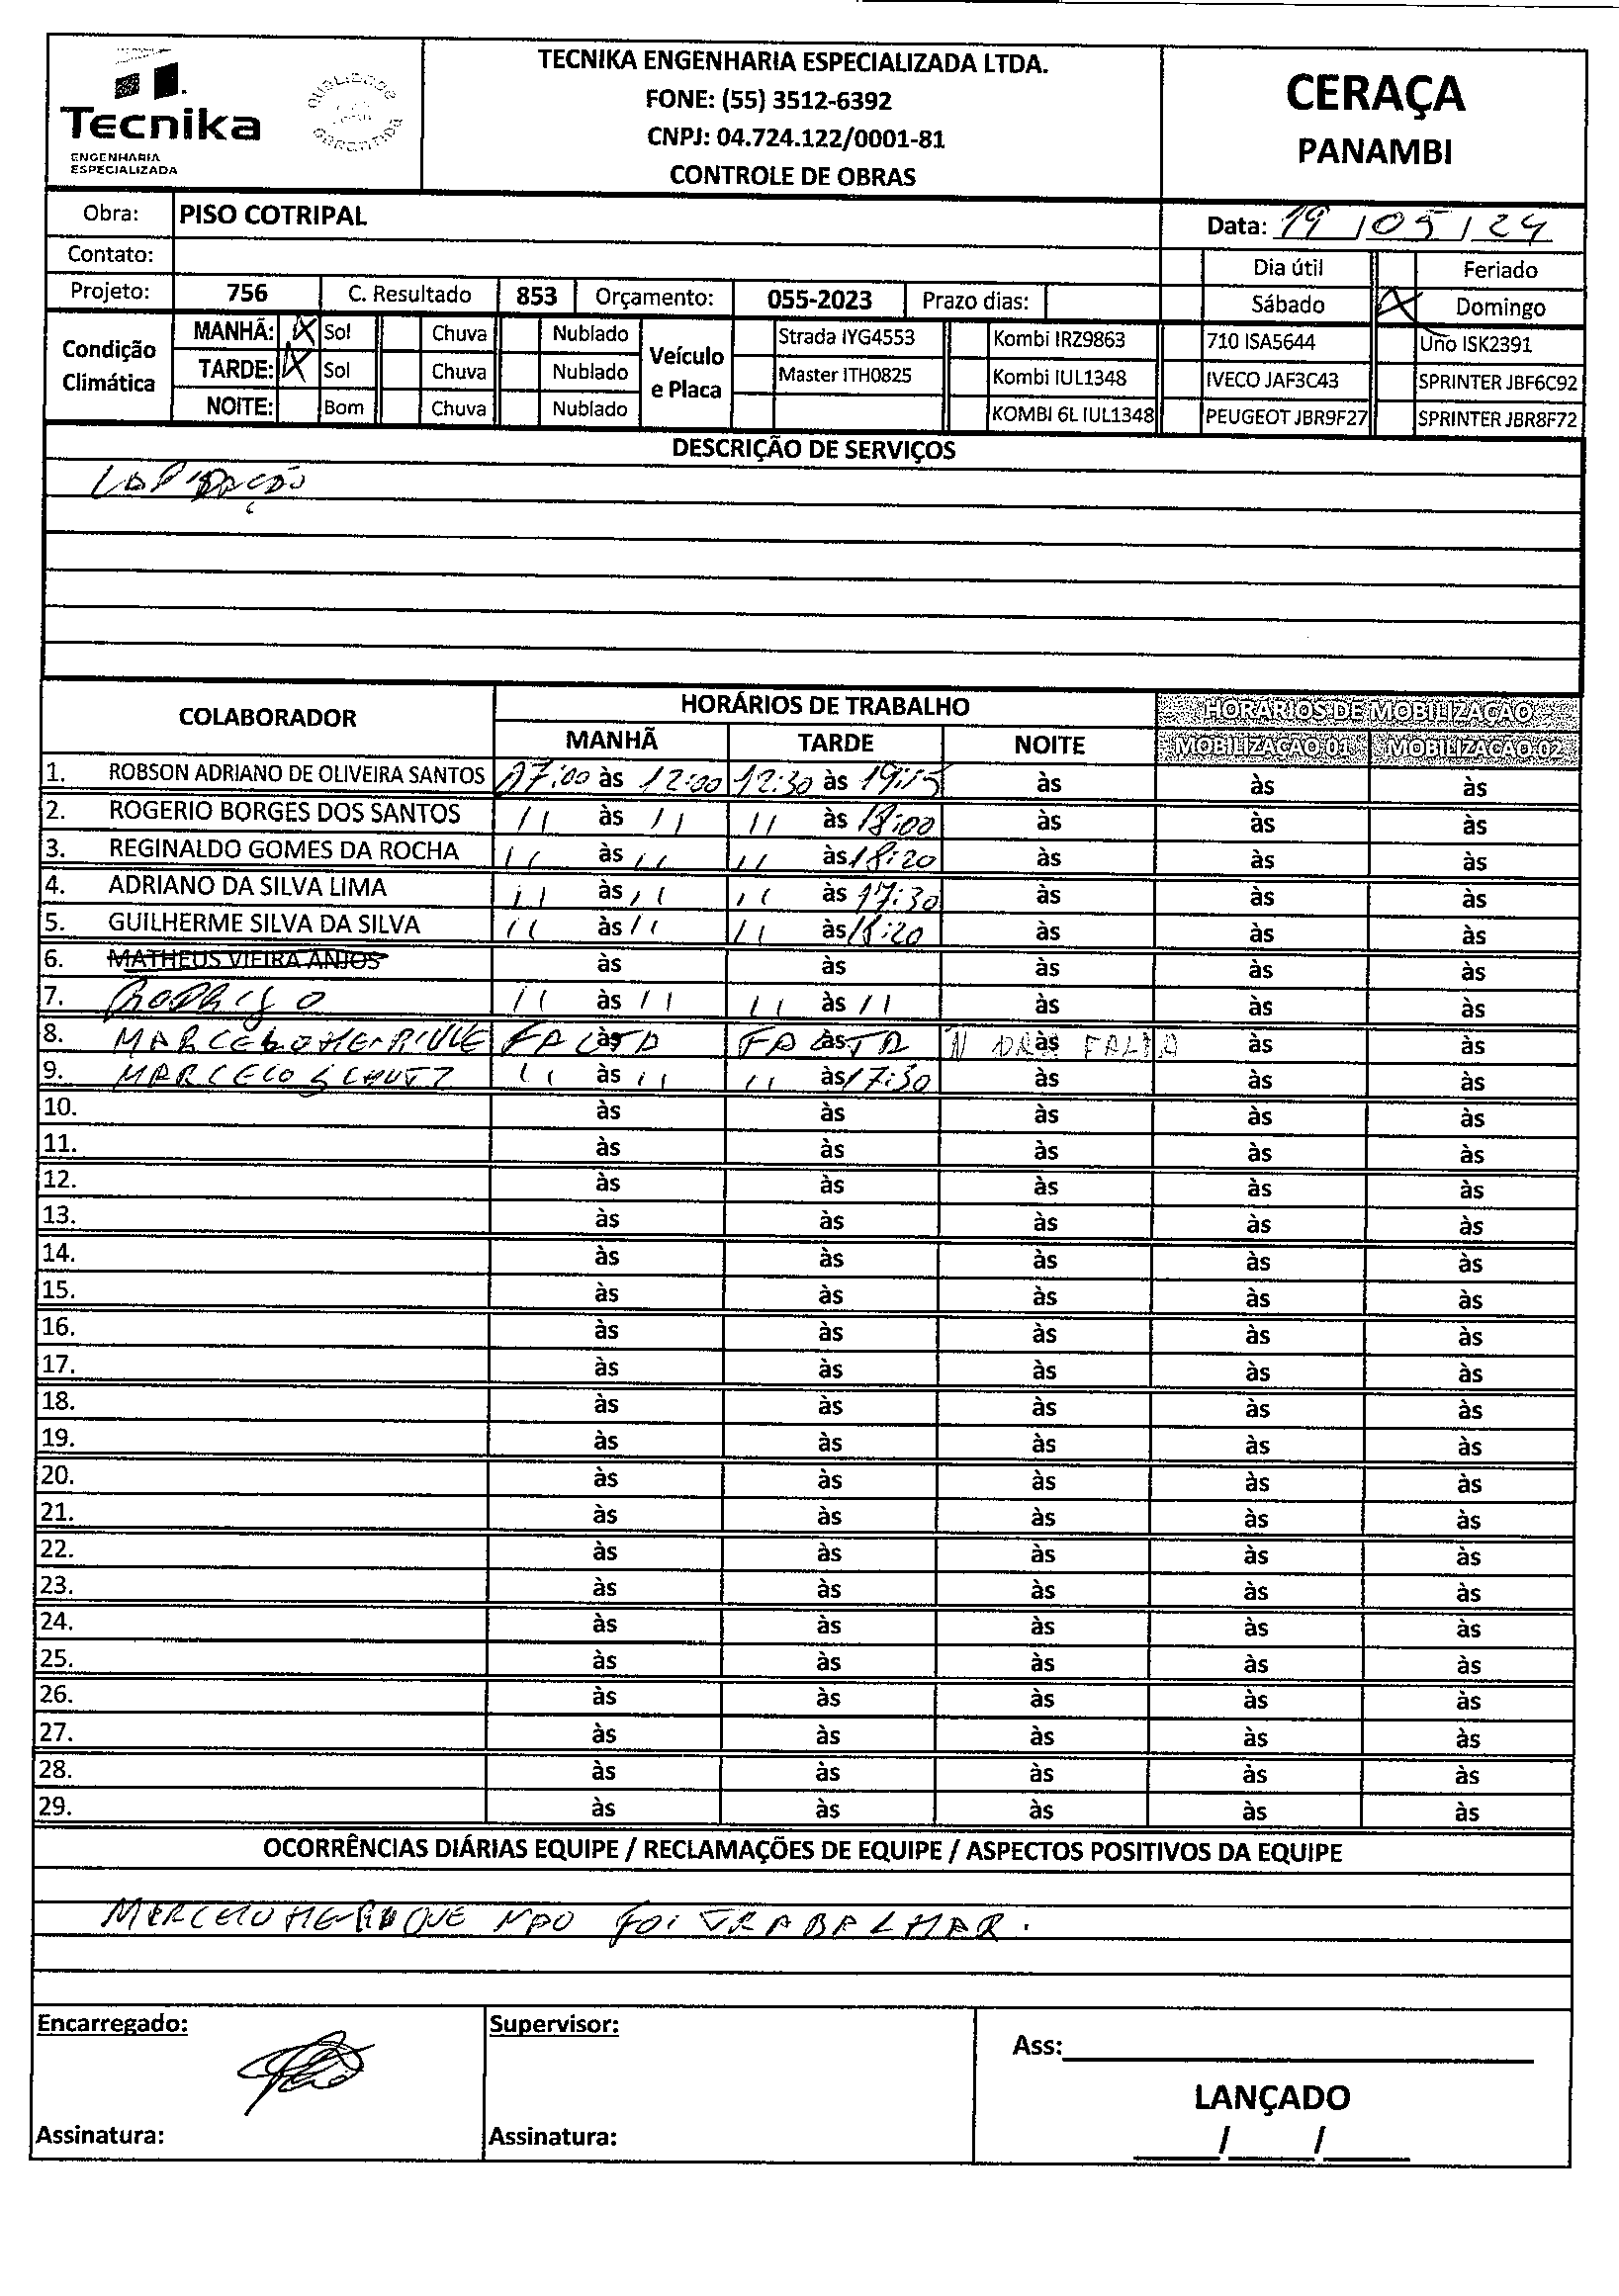 Tecnika
ENGENHARIA
ESPECIALIZADA
QUALIDADE
GARANTIDA
TECNIKA ENGENHARIA ESPECIALIZADA LTDA.
FONE: (55) 3512-6392
CNPJ: 04.724.122/0001-81
CONTROLE DE OBRAS
CERAÇA
PANAMBI
Obra: PISO COTRIPAL
Data: 19/05/24
Contato:
Dia útil Feriado
Projeto: 756 C. Resultado 853 Orçamento: 055-2023 Prazo dias: Sábado X Domingo
Condição Climática
MANHÃ: X Sol Chuva Nublado
TARDE: X Sol Chuva Nublado
NOITE: Bom Chuva Nublado
Veículo e Placa
Strada IYG4553 Kombi IRZ9863 710 ISA5644 Uno ISK2391
Master ITH0825 Kombi IUL1348 IVECO JAF3C43 SPRINTER JBF6C92
KOMBI 6L IUL1348 PEUGEOT JBR9F27 SPRINTER JBR8F72
DESCRIÇÃO DE SERVIÇOS
LAPIDAÇÃO
COLABORADOR HORÁRIOS DE TRABALHO HORÁRIOS DE MOBILIZAÇÃO
MANHÃ TARDE NOITE MOBILIZAÇÃO 01 MOBILIZAÇÃO 02
1. ROBSON ADRIANO DE OLIVEIRA SANTOS 07:00 às 12:00 12:30 às 19:15 às às às
2. ROGERIO BORGES DOS SANTOS 11 às 11 11 às 18:00 às às às
3. REGINALDO GOMES DA ROCHA 11 às 11 11 às 18:20 às às às
4. ADRIANO DA SILVA LIMA 11 às 11 11 às 17:30 às às às
5. GUILHERME SILVA DA SILVA 11 às 11 11 às 18:20 às às às
6. MATHEUS VIEIRA ANJOS às às às às às
7. RODRIGO 11 às 11 11 às 11 às às às
8. MARCELO HENRIQUE FALTA às FALTA às às às às
9. MARCELO 11 às 11 11 às 17:30 às às às
10. às às às às às
11. às às às às às
12. às às às às às
13. às às às às às
14. às às às às às
15. às às às às às
16. às às às às às
17. às às às às às
18. às às às às às
19. às às às às às
20. às às às às às
21. às às às às às
22. às às às às às
23. às às às às às
24. às às às às às
25. às às às às às
26. às às às às às
27. às às às às às
28. às às às às às
29. às às às às às
OCORRÊNCIAS DIÁRIAS EQUIPE / RECLAMAÇÕES DE EQUIPE / ASPECTOS POSITIVOS DA EQUIPE
MARCELO HENRIQUE NÃO FOI TRABALHAR.
Encarregado: Supervisor: Ass:
LANÇADO
Assinatura: Assinatura: / /